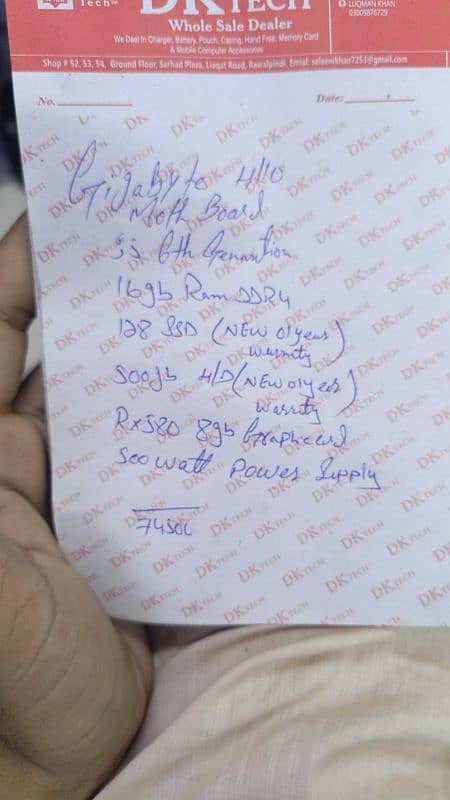 Tech
DKTECH
LUQMAN KHAN
03009876729
Whole Sale Dealer
We Deal In Charger, Battery, Pouch, Casing, Hand Free, Memory Card
& Mobile Computer Accessories
Shop # 52, 53, 54, Ground Floor, Sarhad Plaza, Liaqat Road, Rawalpindi. Email: saleemkhan7251@gmail.com
No.
Date:
Gigabyte H110
Moth Board
i5 6th Generation
16gb Ram DDR4
128 SSD (NEW 01 years
warrnty)
500gb H/D (NEW 01 years
warrnty)
Rx580 8gb Graphcard
500 watt Power Supply
74500